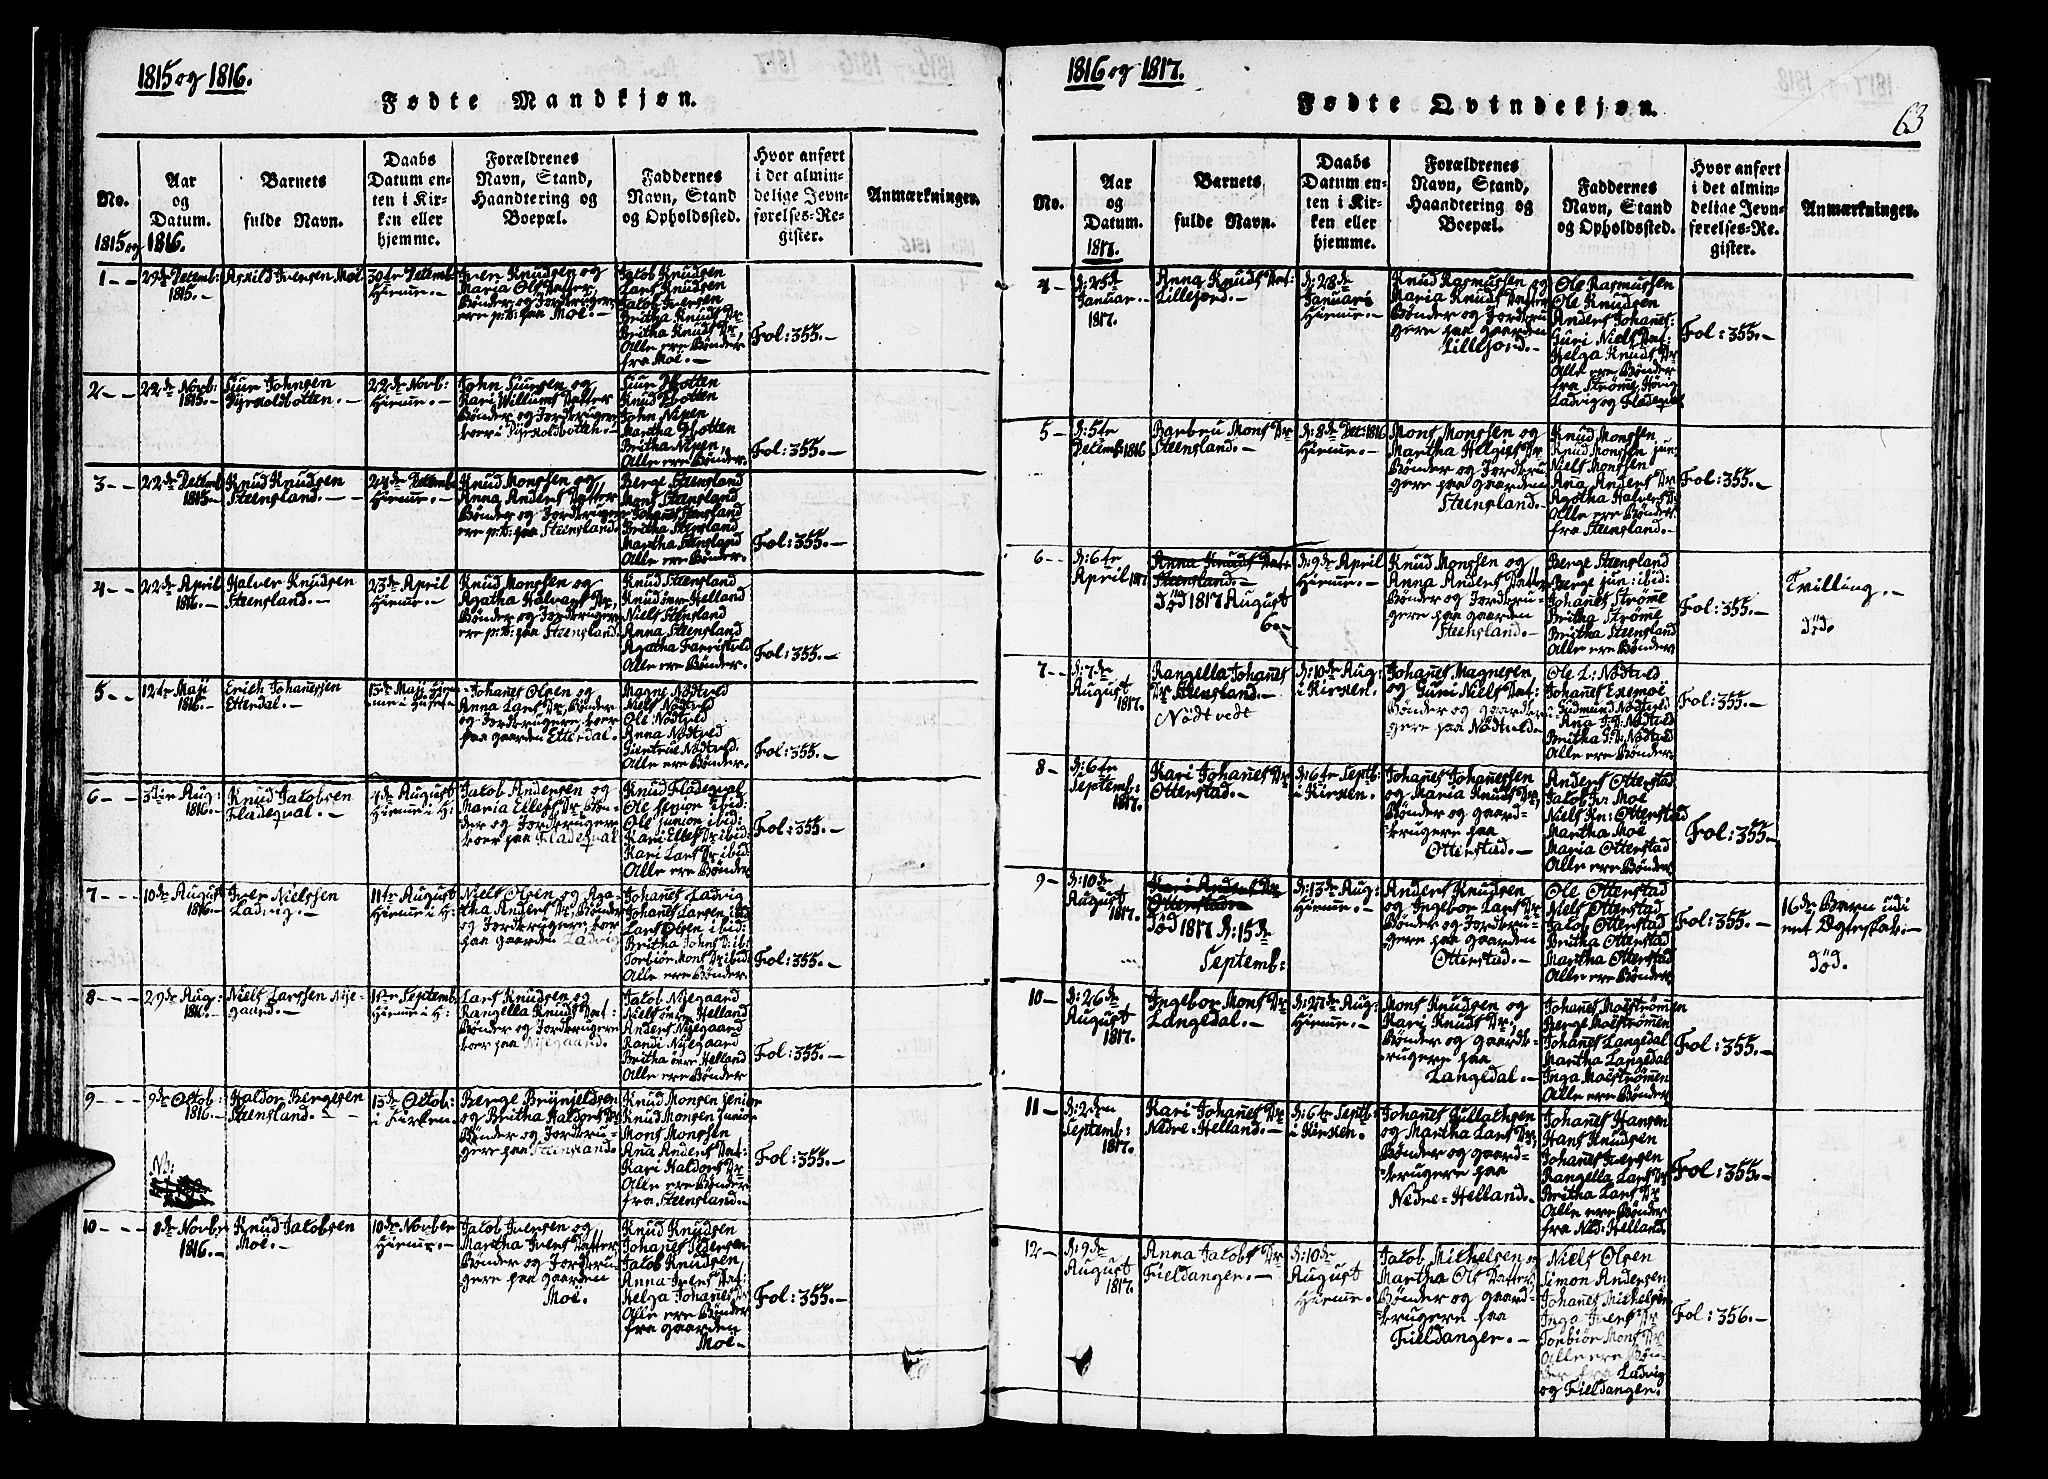 1815 og 1816.
Fødte Mandkjøn.
No.
Aar
og
Datum.
1815 og 1816.
Barnets
fulde Navn.
Daabs
Datum en-
ten i Kir-
ken eller
hjemme.
Forældrenes
Navn, Stand,
Haandtering og
Boepæl.
Faddernes
Navn, Stand
og Opholdssted.
Hvor anført
i det almin-
delige Jevn-
førelses-Re-
gister.
Anmærkninger.
1 - -
29de Decemb:
1815. -
Askild Iversen Moe
30te Decemb
Hjemme. -
Iver Knudsen og
Maria Ols Datter,
Bønder og Jordbruger
ere p:t: paa Moe. -
Jacob Knudsen
Lars Knudsen
Jacob Iversen
Britha Knuds Dr
Britha Knuds Dr
Alle ere Bønder
fra Moe. -
Fol: 355. -
2 - -
22de Novb:
1815. -
Siur Johnsen
22de Novb:
Hjemme. -
John Siursen og
Kari Willums Datter
Bønder og Jordbruger
Siur Botten
Knud Botten
Martha Botten
Alle ere Bønder.
Fol: 355. -
3 - -
22de Decemb
1815 -
Knud Knudsen
Steensland. - -
Hjemme. -
Knud Monssen og
Anna Anders Datter
Bønder og Jordbruger
ere p:t: paa Steensland.
Berge Steensland
Mons Steensland
Johanes Stensland
Britha Steensland
Martha Stensland
Alle ere Bønder.
Fol: 355. -
4 - -
22de April
1816. -
Halver Knudsen
Steensland. -
23de April
Hjemme. -
Knud Monssen og
Agatha Halvars Dr,
Bønder og Jordbruger
ere p:t: paa Steensland.
Knud Steensland
Knud øvre Helland
Niels Stensland
Anna Steensland
Alle ere Bønder.
Fol: 355. -
5 - -
12te Maji
1816. -
Erich Johanessen
Etterdal. -
Johanes Olsen og
Anna Lars Dr, Bønder
og Jordbrugere boer
paa gaarden Etterdal. -
Magne Nødtved
Niels Nødtved
Ole Nødtveld
Anna Nødtved
Alle ere Bønder.
Fol: 355. -
6 - -
Aug:
1816. -
Knud Jacobsen
Fladeqval. -
August
Hjemme i H:
Jacob Andersen og
Maria Ellefs Dr Bøn-
der og Jordbrugere
boer paa Fladeqval
Knud Fladeqval
Ole senior ibid:
Ole junior ibid:
Kari Ellefs Dr ibid:
Kari Lars Dr ibid:
Alle ere Bønder
Fol: 355. -
7 - - -
10de August
1816. -
Iver Nielssen
Ladvig. -
11te August
Hjemme i H:
Niels Olsen og Aga-
tha Anders Dr, Bønder
og Jordbrugere, boer
paa gaarden Ladvig
Johanes Ladvig
Johanes Larsen ibid
Lars Olsen ibid:
Britha Johns Dr ib:
Torbiør Mons Dr ibid:
Alle ere Bønder
Fol: 355. -
8 - - -
29de Aug:
1816. -
Niels Larssen Nye-
gaard. -
Septemb
Hjemme i H:
Lars Knudsen og
Rangella Knuds Dat:
Bønder og Jordbrugere
boer paa Nyegaard.
Jacob Nyegaard
Niels øvre Helland
Anders Nyegaard
Randi Nyegaard
Britha øvre Helland
Alle ere Bønder
Fol: 355. -
9 - - -
9de Octob
1816. -
Haldor Bergesen
Steensland. - -
13de Octob:
i Kirken.
Berge Brynjeldsen
og Britha Haldors Dr
Bønder og Jordbru-
gere paa Steensland.
Knud Monsen senior
Knud Monsen junior
Mons Monssen
Ana Anders Dat:
Kari Haldors Dr
Alle ere Bønder
fra Steensland. -
Fol: 355. -
Nb:
10 - - -
8de Novbr
1816. -
Knud Jacobsen
Moe. -
10de Novber
Hjemme. -
Jacob Iversen og
Martha Ivers Datter
Bønder og Jordbru-
gere paa gaarden
Moe.
Knud Knudsen
Johanes Pedersen
Jacob Knudsen
Anna Ivers Dat:
Helga Johanes Dr
Alle ere Bønder
fra gaarden
Moe -
Fol: 355. -
1816 og 1817.
Fødte Qvindekjøn.
63
No.
Aar
og
Datum.
1817.
Barnets
fulde Navn.
Daabs
Datum en-
ten i Kir-
ken eller
hjemme.
Forældrenes
Navn, Stand,
Haandtering og
Boepæl.
Faddernes
Navn, Stand
og Opholdssted.
Hvor anført
i det almin-
delige Jevn-
førelses-Re-
gister.
Anmærkninger.
4 -
d: 25de
Januar -
1817.
Anna Knuds Dat:
Lillefjord. -
d: 28de
Januari
Hjemme. -
Knud Rasmussen og
Maria Knuds Datter
Bønder og Jordbru
gere paa gaarden
Lillefjord. -
Ole Rasmussen
Ole Knudsen
Anders Johanes:
Guri Niels Dat:
Helga Knuds Dr
Alle ere Bønder
fra Strøme, Hövig
Ladvig og Fladeqval
Fol: 355. -
5 -
d: 5te
Decemb: 1816
Barbru Mons Dr
Steensland. -
d: 8de Dec: 1816
Hjemme. -
Mons Monssen og
Martha Helgies Dr
Bønder og Jordbru
gere paa gaarden
Steensland. -
Knud Monssen
Knud Monssen jun:
Niels Monssen
Ana Anders Dr
Agotha Halvers Dr
Alle ere Bønder
fra Steensland. -
Fol: 355. -
6 - -
d: 6te
April 1817
Anna Knuds Datr
Steensland. -
Död 1817 August
6. -
d: 9de April
Hjemme. -
Knud Monssen og
Anna Anders Datter
Bønder og Jordbru-
gere paa gaarden
Steensland. -
Berge Steensland
Berge jun: ibid:
Johanes Strøme
Britha Strøme
Britha Steensland
Alle ere Bønder
Fol: 355. -
Tvilling. -
död.
7 -
d: 7de
August
1817.
Rangella Johanes
Dr Steensland. -
Nødtvedt
d: 10de Aug:
i Kirken.
Johanes Magnesen
og Guri Niels Dat:
Bønder og gaardbru-
gere paa Nødtveld -
Ole L: Nødtved
Johanes Exemoe
Gudmund Nødtved
Ana J: D: Nødtved
Britha J: D: Nødtved
Alle ere Bønder
Fol: 355. -
8 -
d: 6te
Septemb:
1817.
Kari Johanes Dr
Otterstad. -
d: 6te Septb:
i Kirken. -
Johanes Johanessen
og Maria Knuds Dr,
Bønder og gaard-
brugere paa
Otterstad. -
Anders Otterstad
Jacob Iv: Moe
Niels Kn: Otterstad
Martha Moe
Maria Otterstad
Alle ere Bønder
Fol: 355 -
9 -
d: 10de
August
1817.
Kari Anders Dr
Otterstad -
Död 1817 d: 15de
Septemb:
d: 13de Aug:
Hjemme. -
Anders Knudsen
og Ingebor Lars Dr
Bønder og Jordbru-
gere paa gaarden
Otterstad. -
Ole Otterstad
Niels Otterstad
Jacob Otterstad
Britha Otterstad
Martha Otterstad
Alle ere Bønder
Fol: 355. -
16de Barn udi
eet Egteskab. -
död.
10 -
d: 26de
August
1817.
Ingebor Mons Dr
Langedal. -
d: 27de Aug:
Hjemme. -
Mons Knudsen og
Kari Knuds Dr,
Bønder og gaardb-
rugere paa
Langedal. -
Johanes Moestrømen
Berge Moestrømen
Johanes Langedal
Martha Langedal
Inga Moestrømen
Alle ere Bønder
Fol: 355. -
11 -
d: 2den
Septemb:
1817.
Kari Johanes Dr
Nedre-Helland. -
d: 6te Septb:
i Kirken. -
Johanes Gullachsen
og Martha Lars Dr,
Bønder og gaard-
brugere paa
Nedre=Helland. -
Johanes Hansen
Hans Knudsen
Johanes Iversen
Rangella Lars Dr
Britha Lars Dr
Alle ere Bønder
fra Ned: Helland.
Fol: 355. -
12 -
d: 9de
August
1817.
Anna Jacobs Dr
Fieldanger. -
d: 10de
August
Hjemme. -
Jacob Michelsen og
Martha Ols Datter
Bønder og gaard-
brugere paa
Fieldanger. -
Niels Olsen
Simon Andersen
Johanes Michelsen
Inga Ivers Dr
Torbiør Mons Dr
Alle ere Bøn-
der fra Ladvig
og Fieldanger.
Fol: 356. -